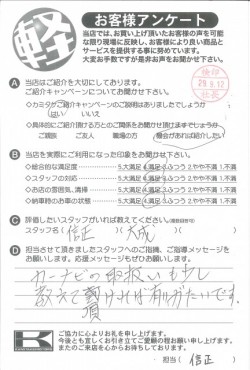 軽
お客様アンケート
当店では、お買い上げ頂いたお客様の声を可能
な限り現場に反映し、お客様により良い商品と
サービスを提供する事に努めています。
大変お手数ですが是非お声をお聞かせ下さい。
検印
29.8.12
社長
A 当店はご紹介を大切にしてあります。
ご紹介キャンペーンについてお聞かせ下さい。
はい いいえ
ご親族 ご友人 職場の方 機会があれば紹介したい
B 当店を実際にご利用になった印象をお聞かせ下さい。
◇総合的な満足度 5.大満足 4.満足 3.ふつう 2.やや不満 1.不満
◇スタッフの対応 5.大満足 4.満足 3.ふつう 2.やや不満 1.不満
◇お店の雰囲気、清掃 5.大満足 4.満足 3.ふつう 2.やや不満 1.不満
◇納車時のお車の状態 5.大満足 4.満足 3.ふつう 2.やや不満 1.不満
C 評価したいスタッフがいれば教えてください。
スタッフ名( 信正 ) ( 大成 )
D 担当させて頂きましたスタッフへのご指摘、ご指導メッセージを
お願いします。応援メッセージもぜひお願いします!
カーナビの取扱いも少し
教えて頂ければ有りがたいです。
K
ご協力に心よりお礼を申し上げます。
今後とも宜しくお引き立てご愛顧の程お願い申し上げます。
またのご来店を心からお待ちしております。
担当( 信正 )